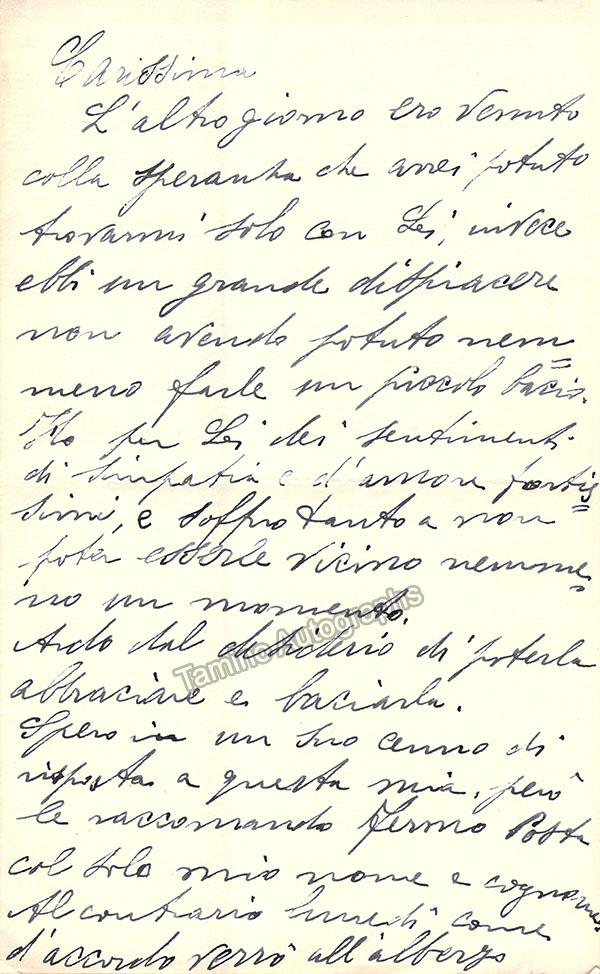 Carissima
L'altro giorno ero venuto
colla speranza che avrei potuto
trovarmi solo con Lei, invece
ebbi un grande dispiacere
non avendo potuto nem=
meno farle un piccolo bacio.
Ho per Lei dei sentimenti
di simpatia e d'amore fortis=
simi, e soffro tanto a non
poter esserle vicino nemme=
no un momento.
Ardo dal desiderio di poterla
abbraciare e baciarla.
Spero in un suo cenno di
risposta a questa mia, però
le raccomando Fermo Posta
col solo mio nome e cognome
Al contrario lunedì come
d'accordo verrò all'albergo
Tamino Autographs